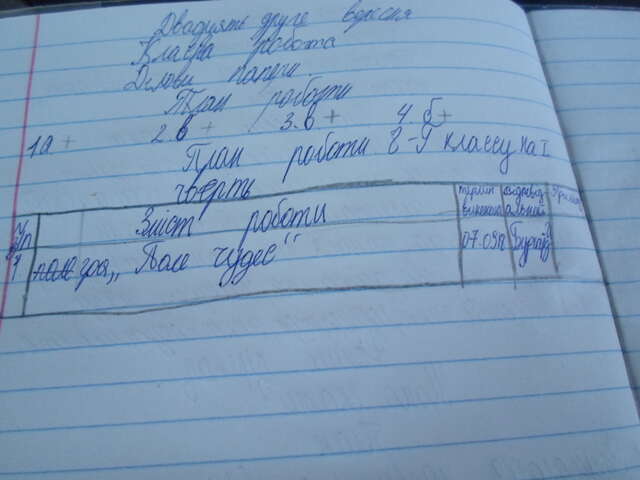 Двадцять друге вересня
Класна робота
Ділові папери
План роботи
1а + 2.в + 3.в + 4.б +
План роботи 8-Г классу на І
чверть
№ п/п Зміст роботи термін виконан відповід альний
1 гра „Поле чудес" 07.09